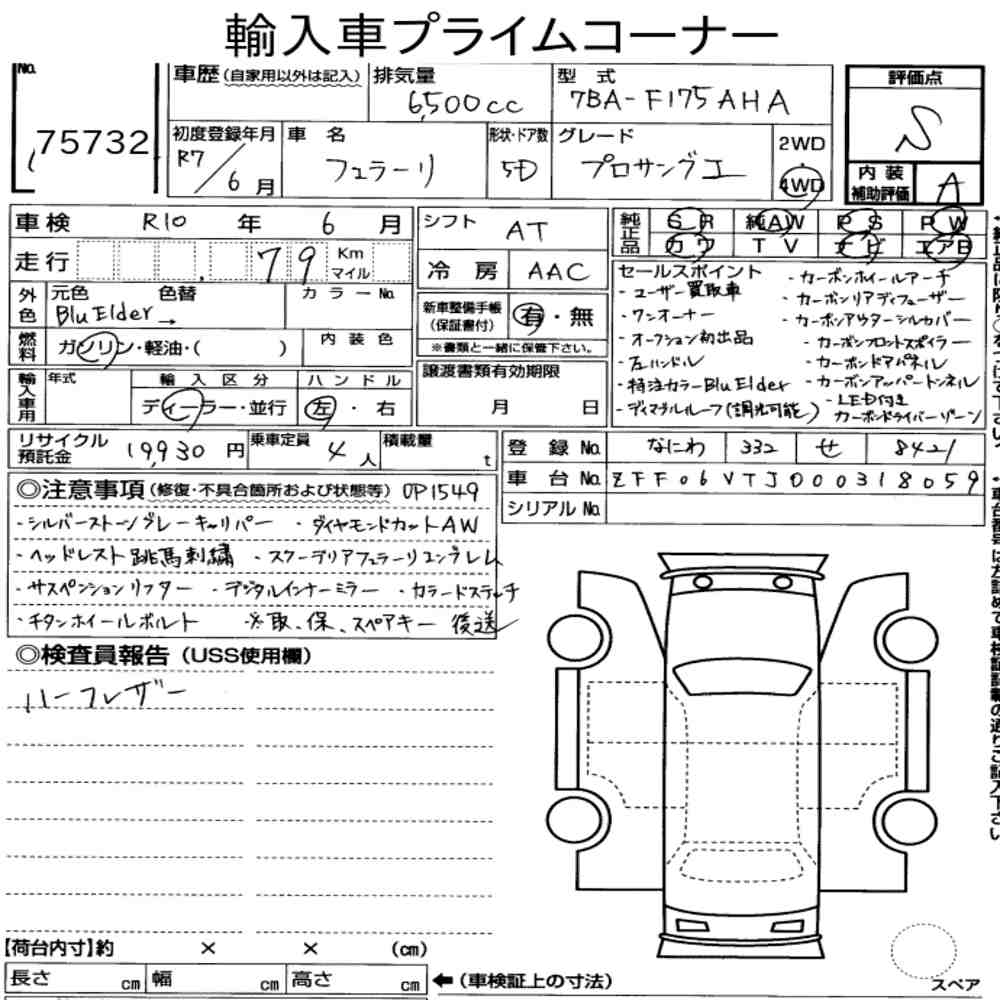 輸入車プライムコーナー
No.
75732
車歴(自家用以外は記入)
排気量
6,500cc
型 式
7BA-F175AHA
評価点
S
初度登録年月
R7/6月
車 名
フェラーリ
形状・ドア数
5D
グレード
プロサングエ
2WD
・
4WD
内装
補助評価
A
車検 R10 年 6 月
シフト AT
純正品
SR 純AW PS PW
カワ TV ナビ エアB
走行 79 Km マイル
冷房 AAC
外色
元色 色替
Blu Elder →
カラーNo.
新車整備手帳
(保証書付)
有・無
※書類と一緒に保管下さい。
燃料
ガソリン・軽油・( )
内装色
譲渡書類有効期限
月 日
輸入車用
年式
輸入区分
ディーラー・並行
ハンドル
左・右
セールスポイント
・ユーザー買取車
・ワンオーナー
・オークション初出品
・左ハンドル
・特注カラーBlu Elder
・デジタルルーフ(調光可能)
・カーボンホイールアーチ
・カーボンリアディフューザー
・カーボンアウターシルカバー
・カーボンフロントスポイラー
・カーボンドアパネル
・カーボンアッパートンネル
・LED付き
カーボンドライバーゾーン
リサイクル
預託金
19,930円
乗車定員
4人
積載量
t
登録No. なにわ 332 せ 8421
車台No. ZFF06VTJ000318059
シリアルNo.
◎注意事項(修復・不具合箇所および状態等) OP1549
・シルバーストーングレーキャリパー ・ダイヤモンドカットAW
・ヘッドレスト跳馬刺繍 ・スクーデリアフェラーリエンブレム
・サスペンションリフター ・デジタルインナーミラー ・カラードステッチ
・チタンホイールボルト ※取、保、スペアキー 後送
◎検査員報告(USS使用欄)
ハーフレザー
【荷台内寸】約 × × (cm)
長さ cm 幅 cm 高さ cm
←(車検証上の寸法)
スペア